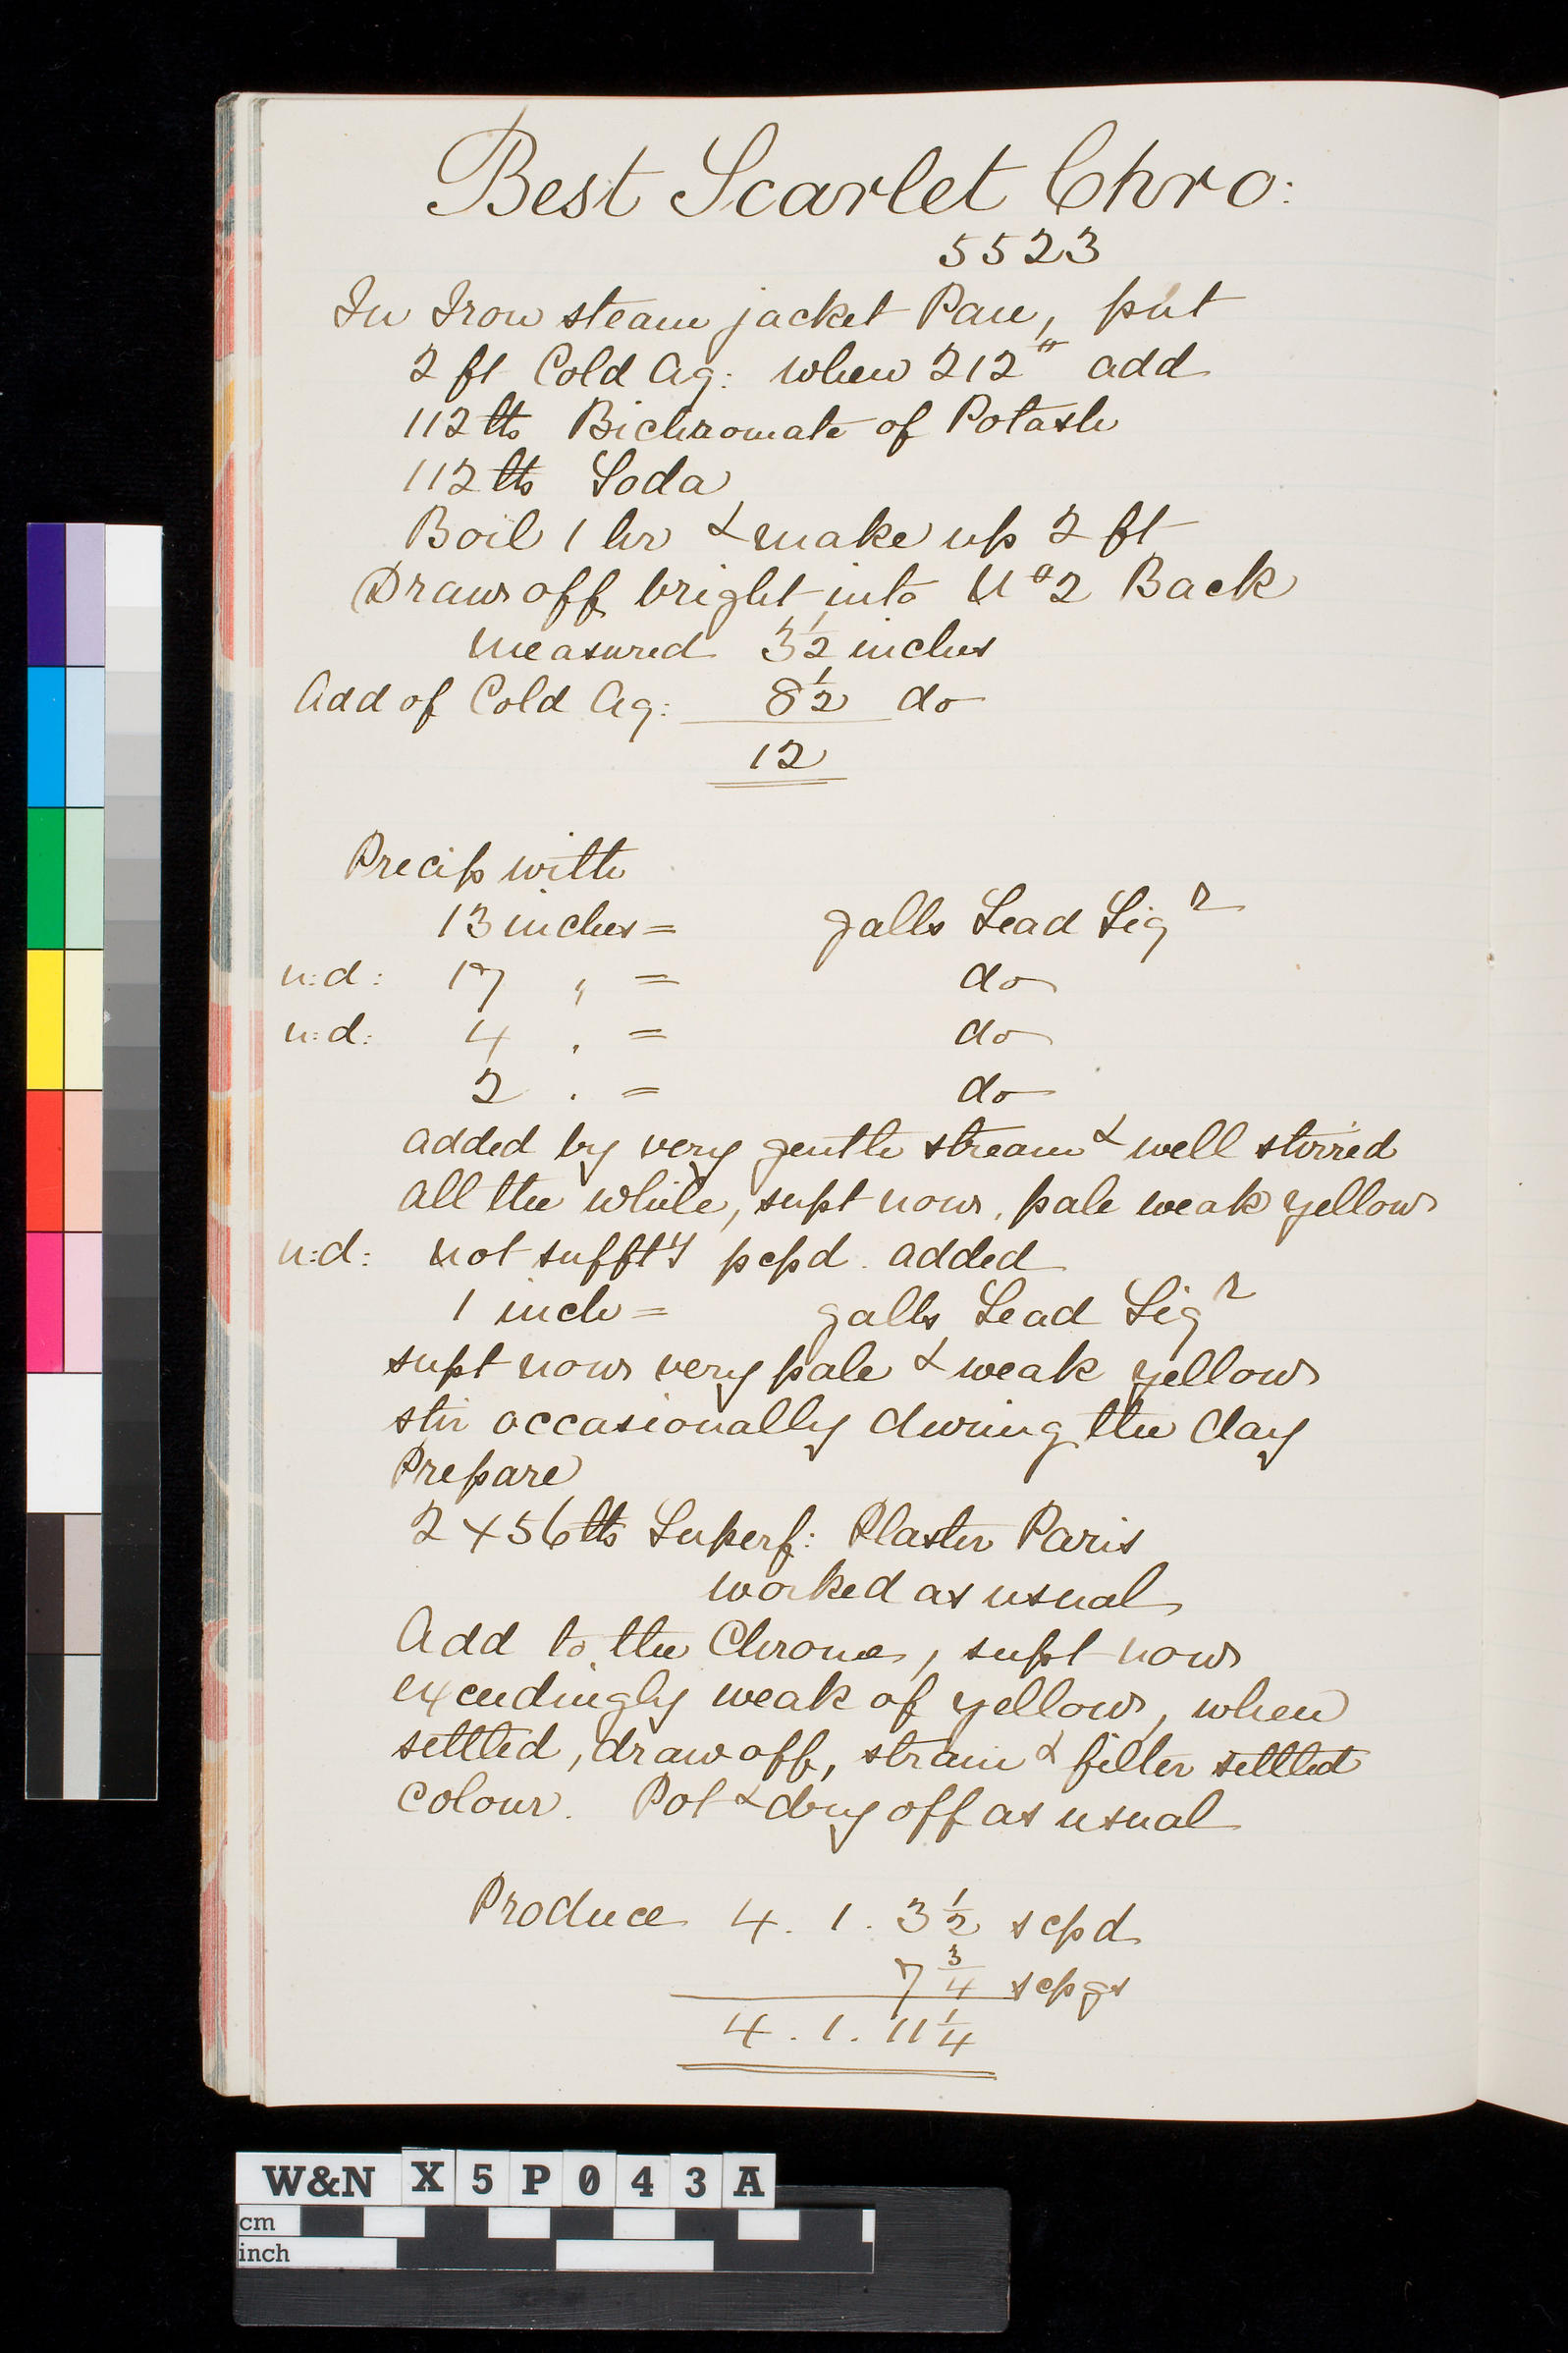 Best Scarlet Chro:
5523
In Iron steam jacket Pan, put
2 ft Cold Aq: when 212° add
112 lbs Bichromate of Potash
112 lbs Soda
Boil 1 hr & make up 2 ft
Draw off bright into No 2 Back
measured 3½ inches
Add of Cold Aq: 8½ do
12
Precip with
13 inches = galls Lead Liqr
n:d: 17 " = do
n:d: 4 " = do
2 " = do
added by very gentle stream & well stirred
all the while, supt now, pale weak yellow
n:d: not suffty pcpd. added
1 inch = galls Lead Liqr
supt now very pale & weak yellow
stir occasionally during the day
Prepare
2 x 56 lbs Superf: Plaster Paris
worked as usual
Add to the Chrome, supt now
exceedingly weak of yellow, when
settled, draw off, strain & filter settled
colour. Pot & dry off as usual
Produce 4. 1. 3½ scpd
7¾ scpgs
4. 1. 11¼
W&N X5P043A
cm
inch